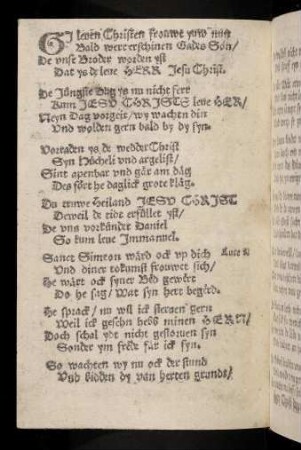 GI leven Christen frouwt yuw nuͤ
Bald wert erschinen Gades Soͤn/
De vnse Broder worden yst
Dat ys de leve HERR Jesu Christ.
De Juͤngste Dag ys nu nicht feer
Kum JESV CHRISTE leve HER/
Neyn Dag vorgeit/ wy wachten din
Vnd wolden gern bald by dy syn.
Vorraden ys de wedderChrist
Syn Huͤcheli vnd argelist/
Sint apenbar vnd gar am dag
Des foͤrt he daglick grote klag.
Du truwe Heiland JESV CHRIST
Dewil de tide erfuͤllet yst/
De vns vorkuͤndet Daniel
So kum leve Immanuel.
Sanct Simeon ward ock vp dich
Luce 2.
Vnd diner tokumst frouwet sich/
He wart ock syner Bed gewert
Do he sag/ Wat syn hert begerd.
He sprack/ nu wil ick sterven gern
Weil ick gesehn hebb minen HERN/
Doch schal ydt nicht gestorven syn
Sonder ym frede far ick hyn.
So wachten wy nu ock der stund
Vnd bidden dy van herten grund/